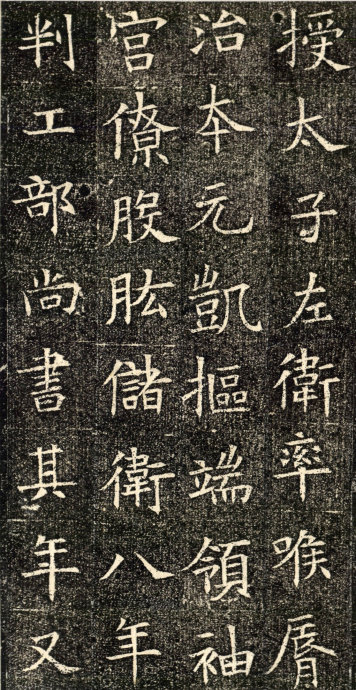 授太子左衛率喉脣
治本元凱摳端領袖
宮僚股肱儲衛八年
判工部尚書其年又